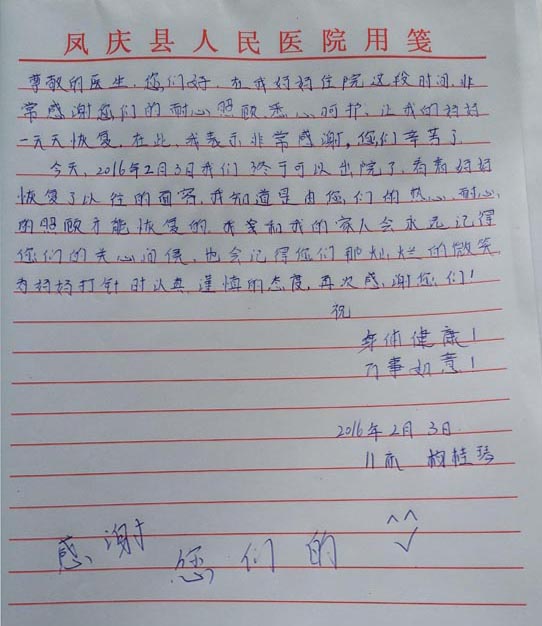 凤庆县人民医院用笺
尊敬的医生,您们好,在我妈妈住院这段时间,非
常感谢您们的耐心照顾悉心呵护,让我的妈妈
一天天恢复,在此,我表示非常感谢,您们辛苦了
今天,2016年2月3日我们终于可以出院了,看着妈妈
恢复了以往的面容,我知道是由您们的热心,耐心
的照顾才能恢复的,我会和我的家人会永远记得
您们的关心问候,也会记得您们那灿烂的微笑
为妈妈打针时认真谨慎的态度,再次感谢您们!
祝
身体健康!
万事如意!
2016年2月3日
杨桂琴
感谢您们的